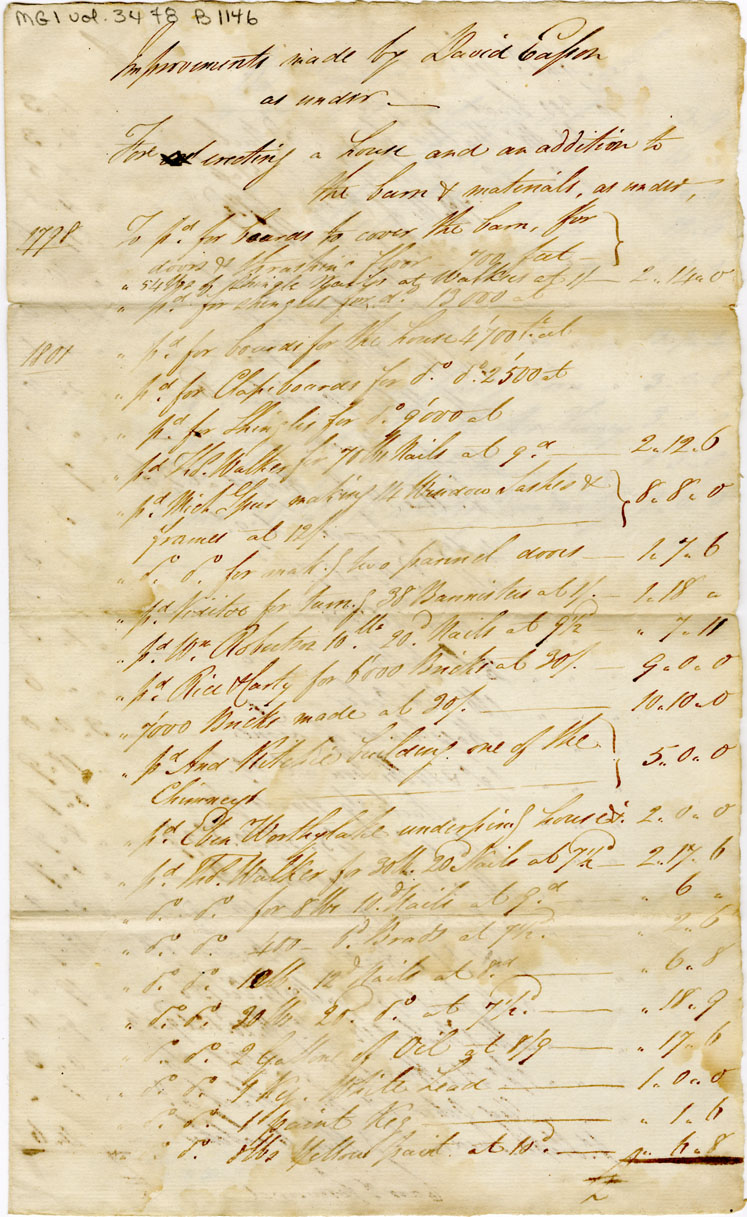 MG1 vol. 3478 B1146
Improvements made by David Easson
as under
For erecting a house and an addition to
the barn & materials, as under,
1798 To pd for boards to cover the barn, for
doors & thrashing floor 700 feet
" 54 lbs of shingle Nails at Walkers at 1/ 2 " 14 " 0
" pd for shingles for do 13000 at
1801 " pd for boards for the house 4'700 ft at
" pd for Clapboards for do do 2'500 at
" pd for Shingles for do 9'000 at
" pd Walker for 70 lb Nails at 9d 2 " 12 " 6
" pd Mich Spur making 14 Window sashes &
frames at 12/ 8 " 8 " 0
" do do for makg two pannel doors 1 " 7 " 6
" pd for turng 38 Bannisters at 1/ 1 " 18 "
" pd Wm Robertson 10 lbs 20d Nails at 9½ " 7 " 11
" pd Rice & Harty for 6'000 Bricks at 30/ 9 " 0 " 0
" 7'000 Bricks made at 30/ 10 " 10 " 0
" pd And Ritchie building one of the
Chimneys 5 " 0 " 0
" pd Eben Worthylake underpinng house &c 2 " 0 " 0
" pd Tho. Walker for 20d Nails at 7½d 2 " 17 " 6
" do do for 8 lbs 10d Nails at 9d " 6 "
" do do 400 Brads at 7½d " 2 " 6
" do do 10 lb 12d Nails at 8d " 6 " 8
" do do 30 lbs 20d do at 7½d " 18 " 9
" do do 2 Gallons of Oil at 8/9 " 17 " 6
" do do 1 Keg White Lead 1 " 0 " 0
" do do 1 paint Keg " 1 " 6
" do 8 lbs Yellow paint at 10d " 6 " 8